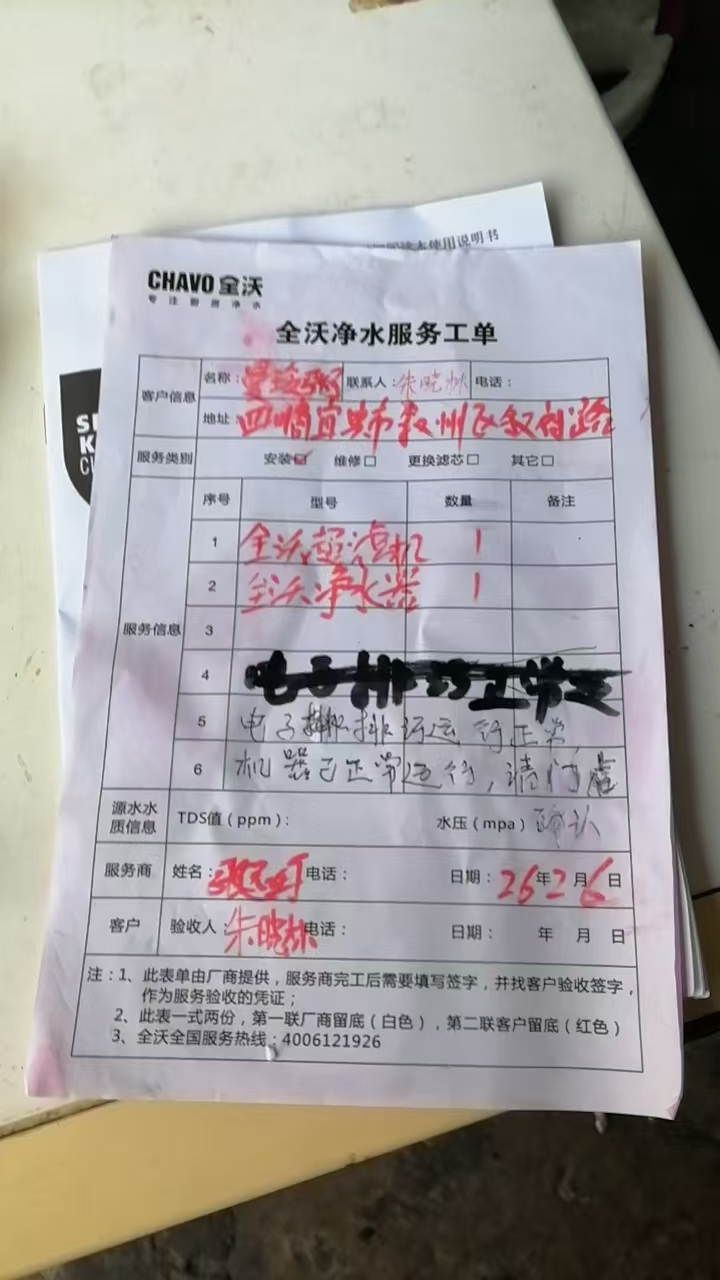 使用说明书
CHAVO 全沃
专注厨房净水
全沃净水服务工单
客户信息
名称: 联系人: 朱晓林 电话:
地址: 四川省宜宾市叙州区叙府路
服务类别 安装☑ 维修□ 更换滤芯□ 其它□
服务信息
序号 型号 数量 备注
1 全沃超滤机 1
2 全沃净水器 1
3
4
5 电子排污运行正常,
6 机器已正常运行,请门店
源水水质信息 TDS值(ppm): 水压(mpa) 确认
服务商 姓名: 电话: 日期: 26年2月6日
客户 验收人: 朱晓林 电话: 日期: 年 月 日
注:1、此表单由厂商提供,服务商完工后需要填写签字,并找客户验收签字,
作为服务验收的凭证;
2、此表一式两份,第一联厂商留底(白色),第二联客户留底(红色)
3、全沃全国服务热线:4006121926